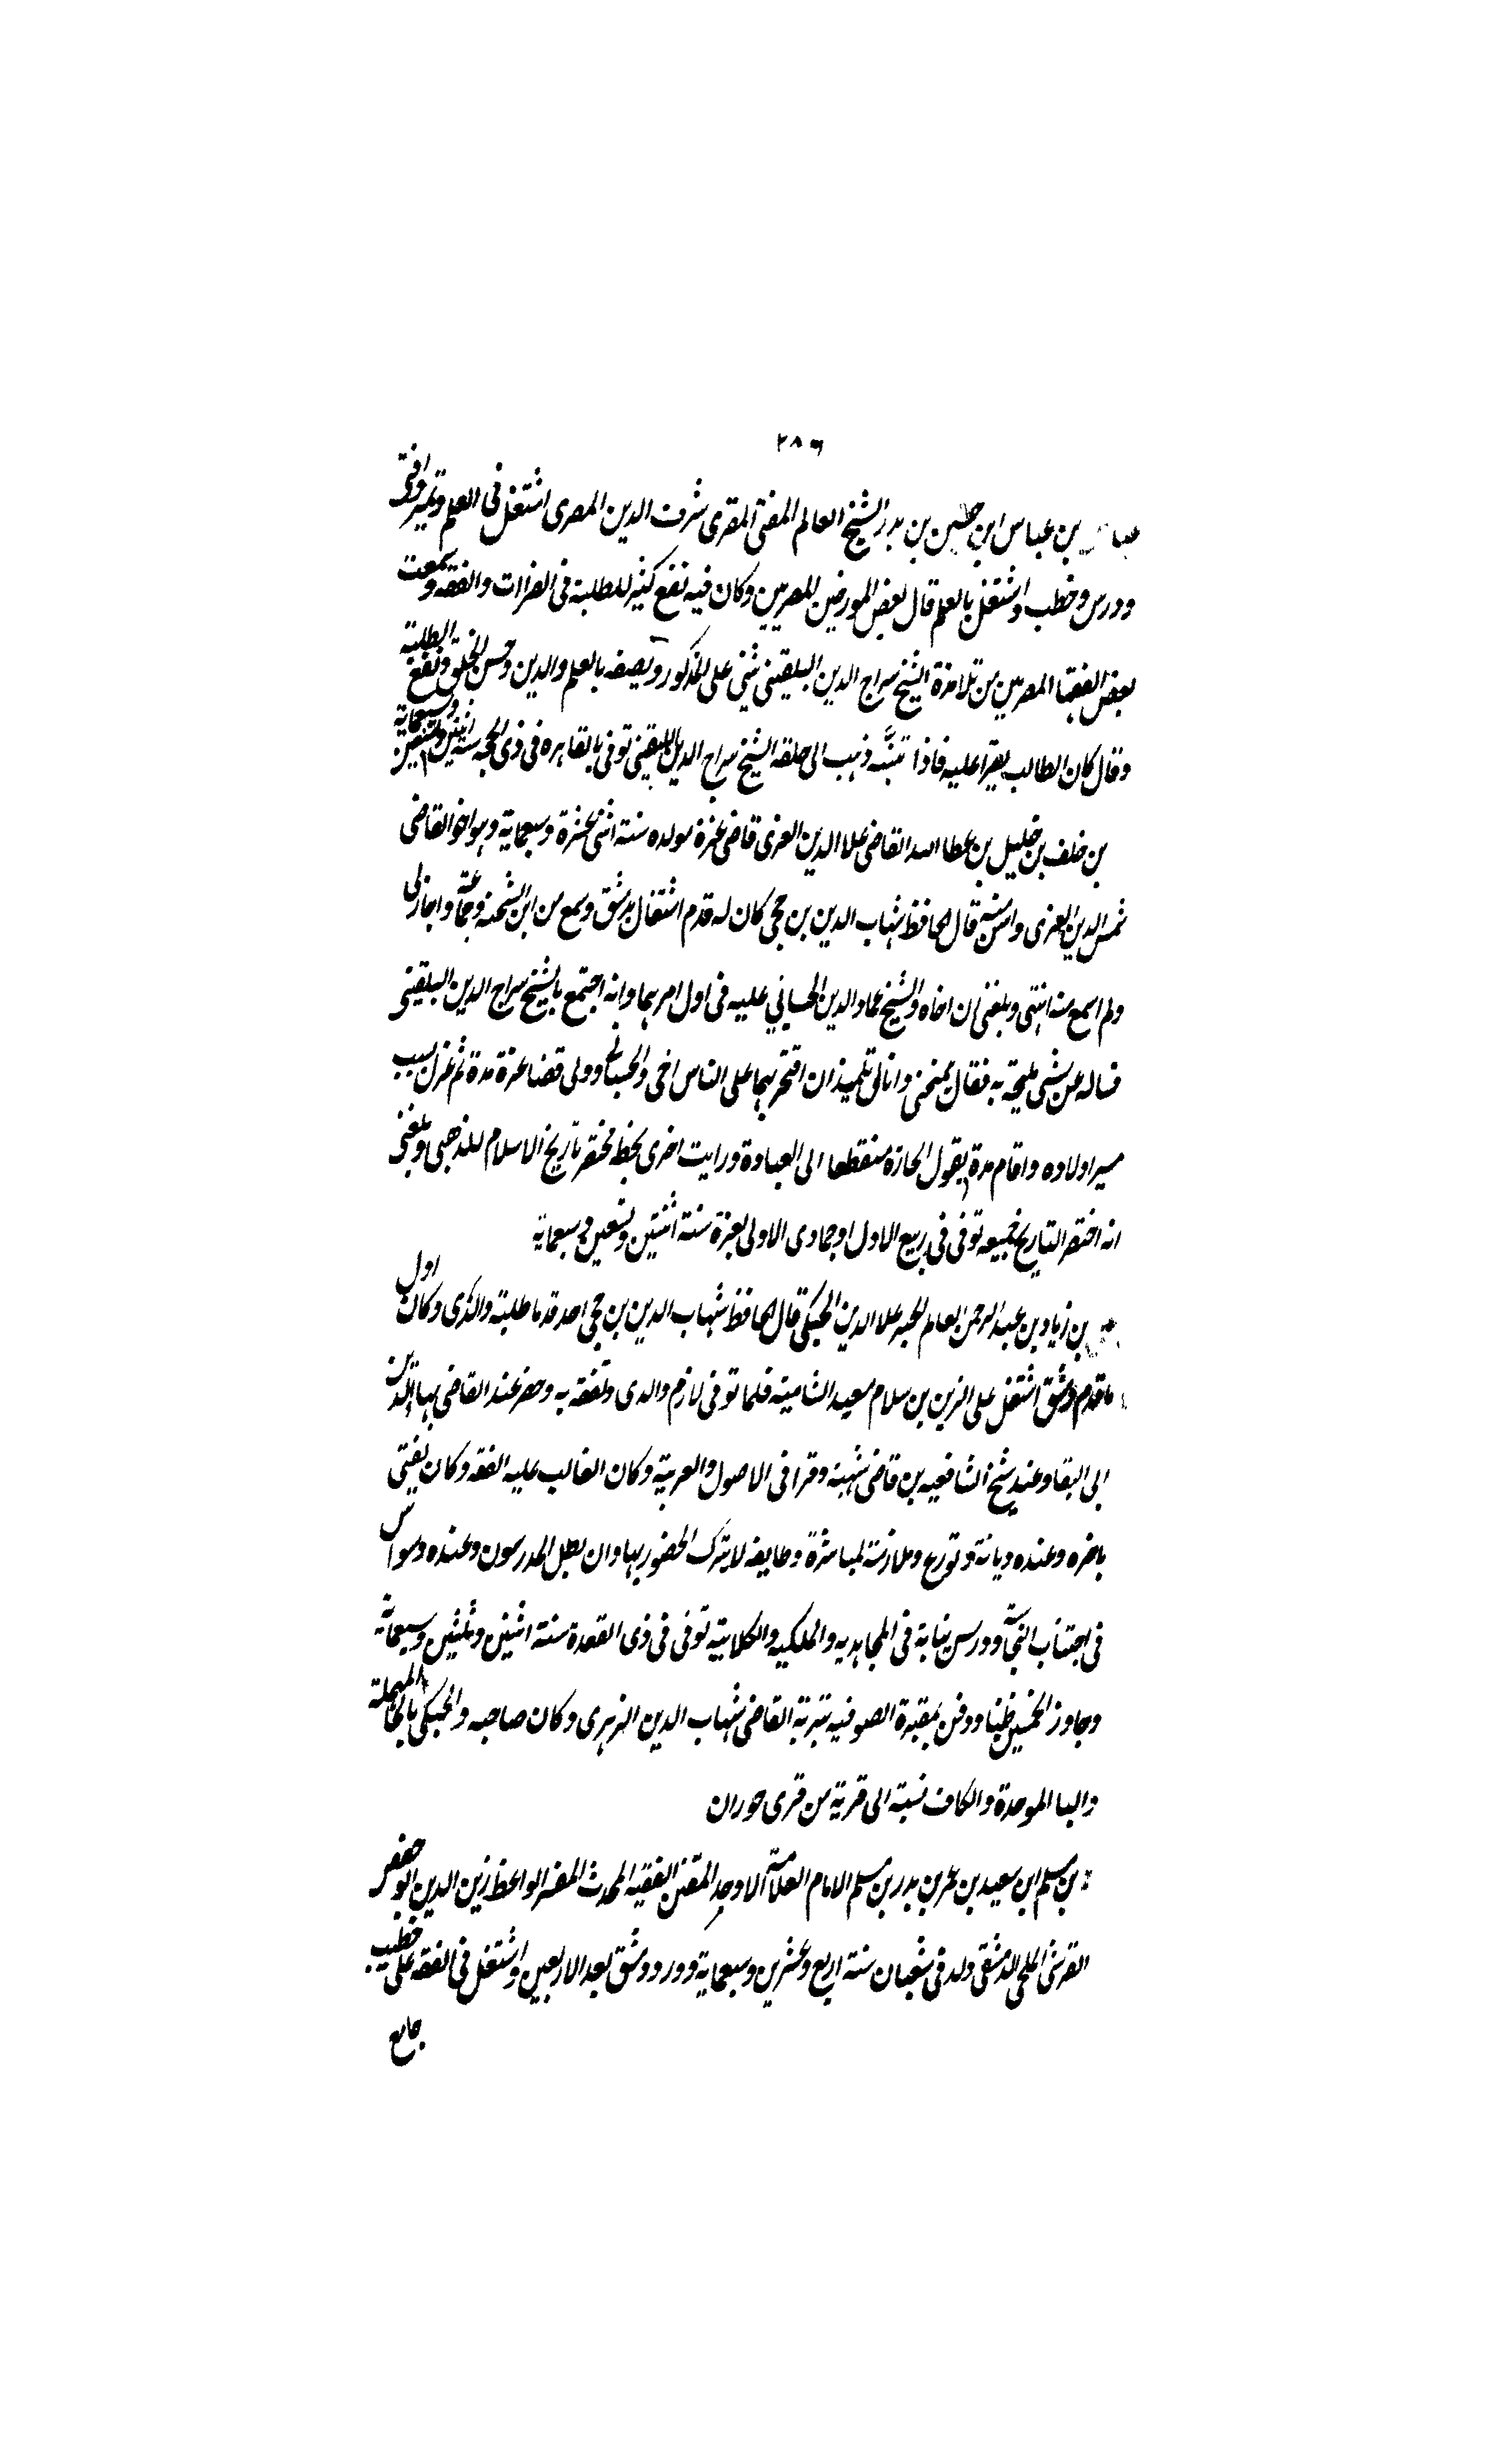 ٢٨٦
عباس بن عباس ابن حسين بن بدر الشيخ العالم المفتى المقرى شرف الدين المصرى اشتغل فى العلم وتميز وافتى
ودرس وخطب واشتغل بالعلم قال بعض المورخين المصريين وكان فيه نفع كثير للطلبة فى القراات والفقه وسمعت
بعض الفقها المصريين من تلامذة الشيخ سراج الدين البلقينى يثنى على المذكور ويصفه بالعلم والدين وحسن الخلق ونفع الطلبة
وقال كان الطالب يقرا عليه فاذا تنبّه ذهب الى حلقة الشيخ سراج الدين البلقينى توفى بالقاهره فى ذى الحجه سنة اثنين وتسعين وسبعماية
بن خلف بن خليل بن عطا الله القاضى علا الدين الغزى قاضى غزة مولده سنة اثنى عشرة وسبعماية وهو اخو القاضى
شمس الدين الغزى واسن منه قال الحافظ شهاب الدين بن حجى كان له قدم اشتغال بدمشق وسمع من ابن الشحنه وجماعة واجاز لى
ولم اسمع منه انتهى وبلغنى ان اخاه والشيخ عماد الدين الحسبانى عليه فى اول امرهما وانه اجتمع بالشيخ سراج الدين البلقينى
فساله عن شى مليحة به فقال يمتحننى وانا لى تلميذان افتخر بهما على الناس اخى والحسبانى وولى قضا غزة مدة ثم عزل بسبب
سير اولاده واقام مدة بقول الحازه منقطعا الى العبادة ورايت اخرى بخطه مختصر تاريخ الاسلام للذهبى وبلغنى
انه اختصر التاريخ جميعه توفى فى ربيع الاول او جمادى الاولى بغزة سنة اثنتين وتسعين وسبعماية
بن زياد بن عبد الرحمن العالم الخير علا الدين الحبكى قال الحافظ شهاب الدين بن حجى احد قدما طلبة والدى وكان اول
ما قدم دمشق اشتغل على الزين بن سلام معيد الشامية فلما توفى لازم والدى وتفقه به وحضر عند القاضى بها الدين
ابى البقا وعند شيخ الشافعيه بن قاضى شهبة وقرا فى الاصول والعربية وكان الغالب عليه الفقه وكان يفتى
باخره وعنده ديانة وتورع وملازمة لمباشرة وظايفه لا يترك الحضور بها وان بطل المدرسون وعنده وسواس
فى اجتناب النجاسة ودرس نيابة فى المجاهديه والملكيه والكلاسيه توفى فى ذى القعدة سنة اثنين وثلثين وسبعماية
وجاوز الخمسين ظنا ودفن بمقبرة الصوفيه بتربة القاضى شهاب الدين الزهرى وكان صاحبه والحبكى بالحا المهملة
والبا الموحدة والكاف نسبة الى قرية من قرى حوران
بن مسلم ابن سعيد بن عمر بن بدر بن مسلم الامام العلامة الاوحد المتقن الفقيه المحدث المفسر الواعظ زين الدين ابو حفص
القرشى الملحى الدمشقى ولد فى شعبان سنة اربع وعشرين وسبعماية وورد دمشق بعد الاربعين واشتغل فى الفقه على خطيب
جامع